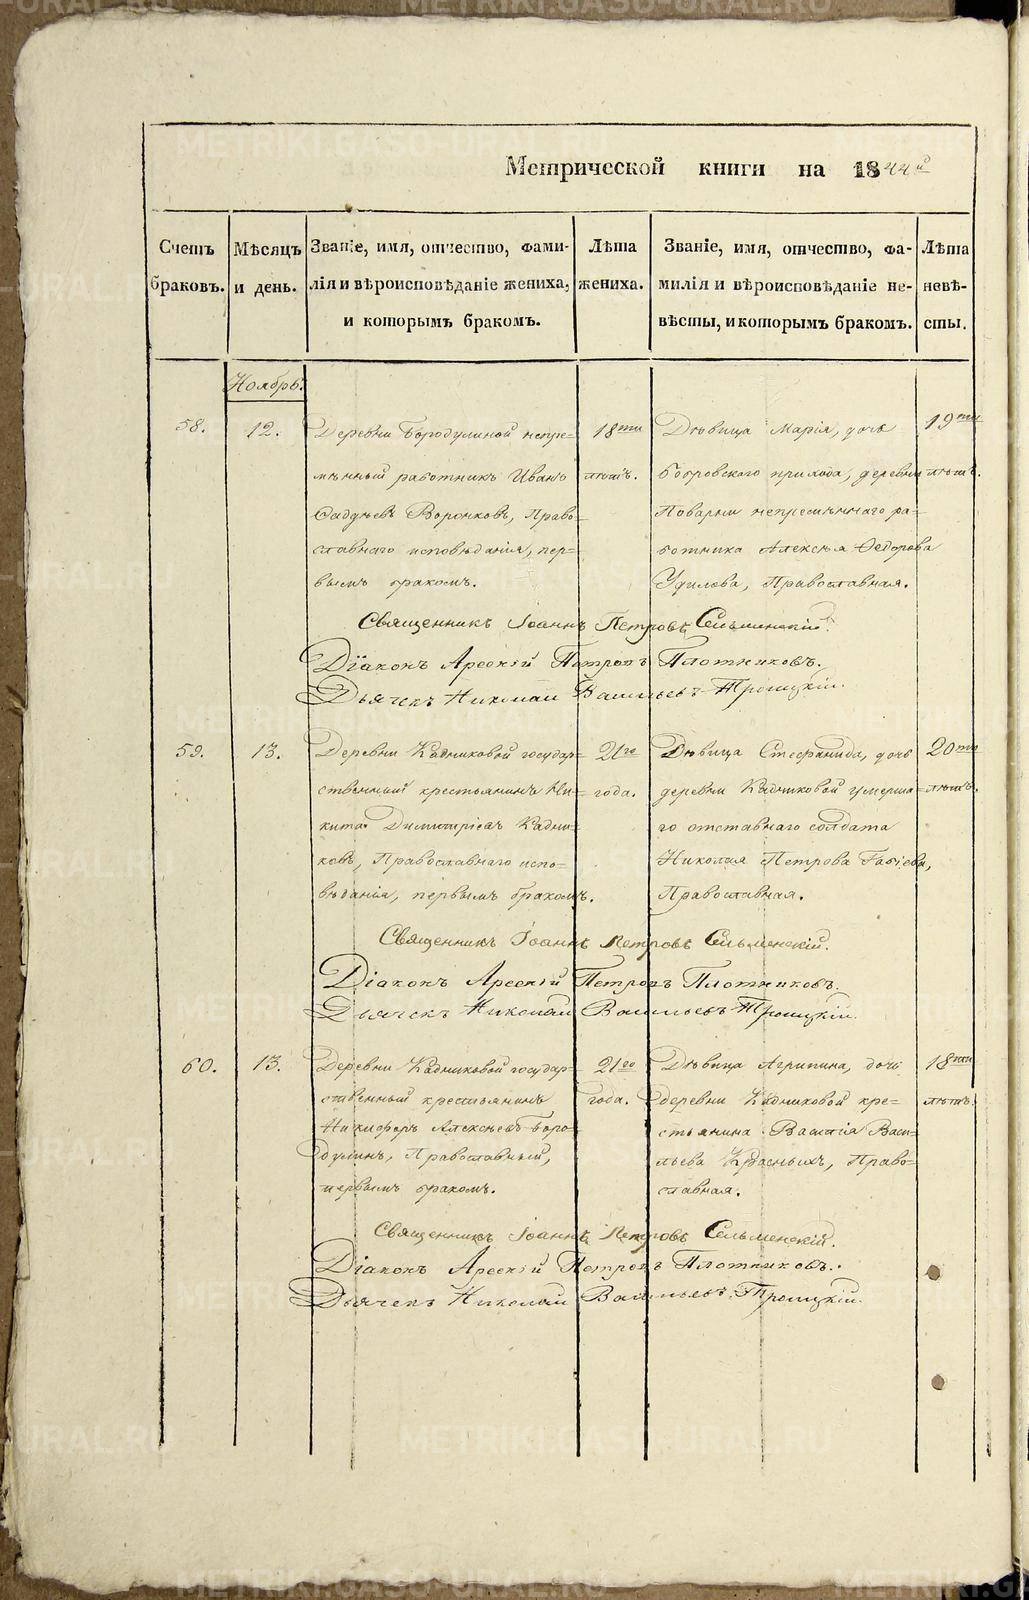 Метрической книги на 1844й
Счетъ браковъ.
Мѣсяцъ и день.
Званіе, имя, отчество, фами-
лія и вѣроисповѣданіе жениха,
и которымъ бракомъ.
Лѣта жениха.
Званіе, имя, отчество, фа-
милія и вѣроисповѣданіе не-
вѣсты, и которымъ бракомъ.
Лѣта невѣ-
сты.
Ноябрь.
58.
12.
Деревни Бородулиной непре-
мѣнный работникъ Иванъ
Фадѣевъ Воронковъ, Право-
славнаго исповѣданія, пер-
вымъ бракомъ.
18ти
лѣтъ.
Дѣвица Марія, дочь
Бобровского прихода, деревни
Поварни непремѣннаго ра-
ботника Алексѣя Ѳедорова
Удилова, Православная.
19ти
лѣтъ.
Священникъ Іоаннъ Петровъ Сельменскій.
Діаконъ Арсеній Петровъ Плотниковъ.
Дьячекъ Николай Васильевъ Троицкій.
59.
13.
Деревни Кадниковой государ-
ственный крестьянинъ Ни-
кита Димитріевъ Кадни-
ковъ, Православнаго испо-
вѣданія, первымъ бракомъ.
21го
года.
Дѣвица Стефанида, дочь
деревни Кадниковой умерша-
го отставнаго солдата
Николая Петрова
Православная.
20ти
лѣтъ.
Священникъ Іоаннъ Петровъ Сельменскій.
Діаконъ Арсеній Петровъ Плотниковъ.
Дьячекъ Николай Васильевъ Троицкій.
60.
13.
Деревни Кадниковой государ-
ственный крестьянинъ
Никифоръ Алексѣевъ Боро-
дулинъ, Православный,
первымъ бракомъ.
21го
года.
Дѣвица Агрипина, дочь
деревни Кадниковой кре-
стьянина Василія Васи-
льева Красныхъ, Право-
славная.
18ти
лѣтъ.
Священникъ Іоаннъ Петровъ Сельменскій.
Діаконъ Арсеній Петровъ Плотниковъ.
Дьячекъ Николай Васильевъ Троицкій.
METRIKI.GASO-URAL.RU